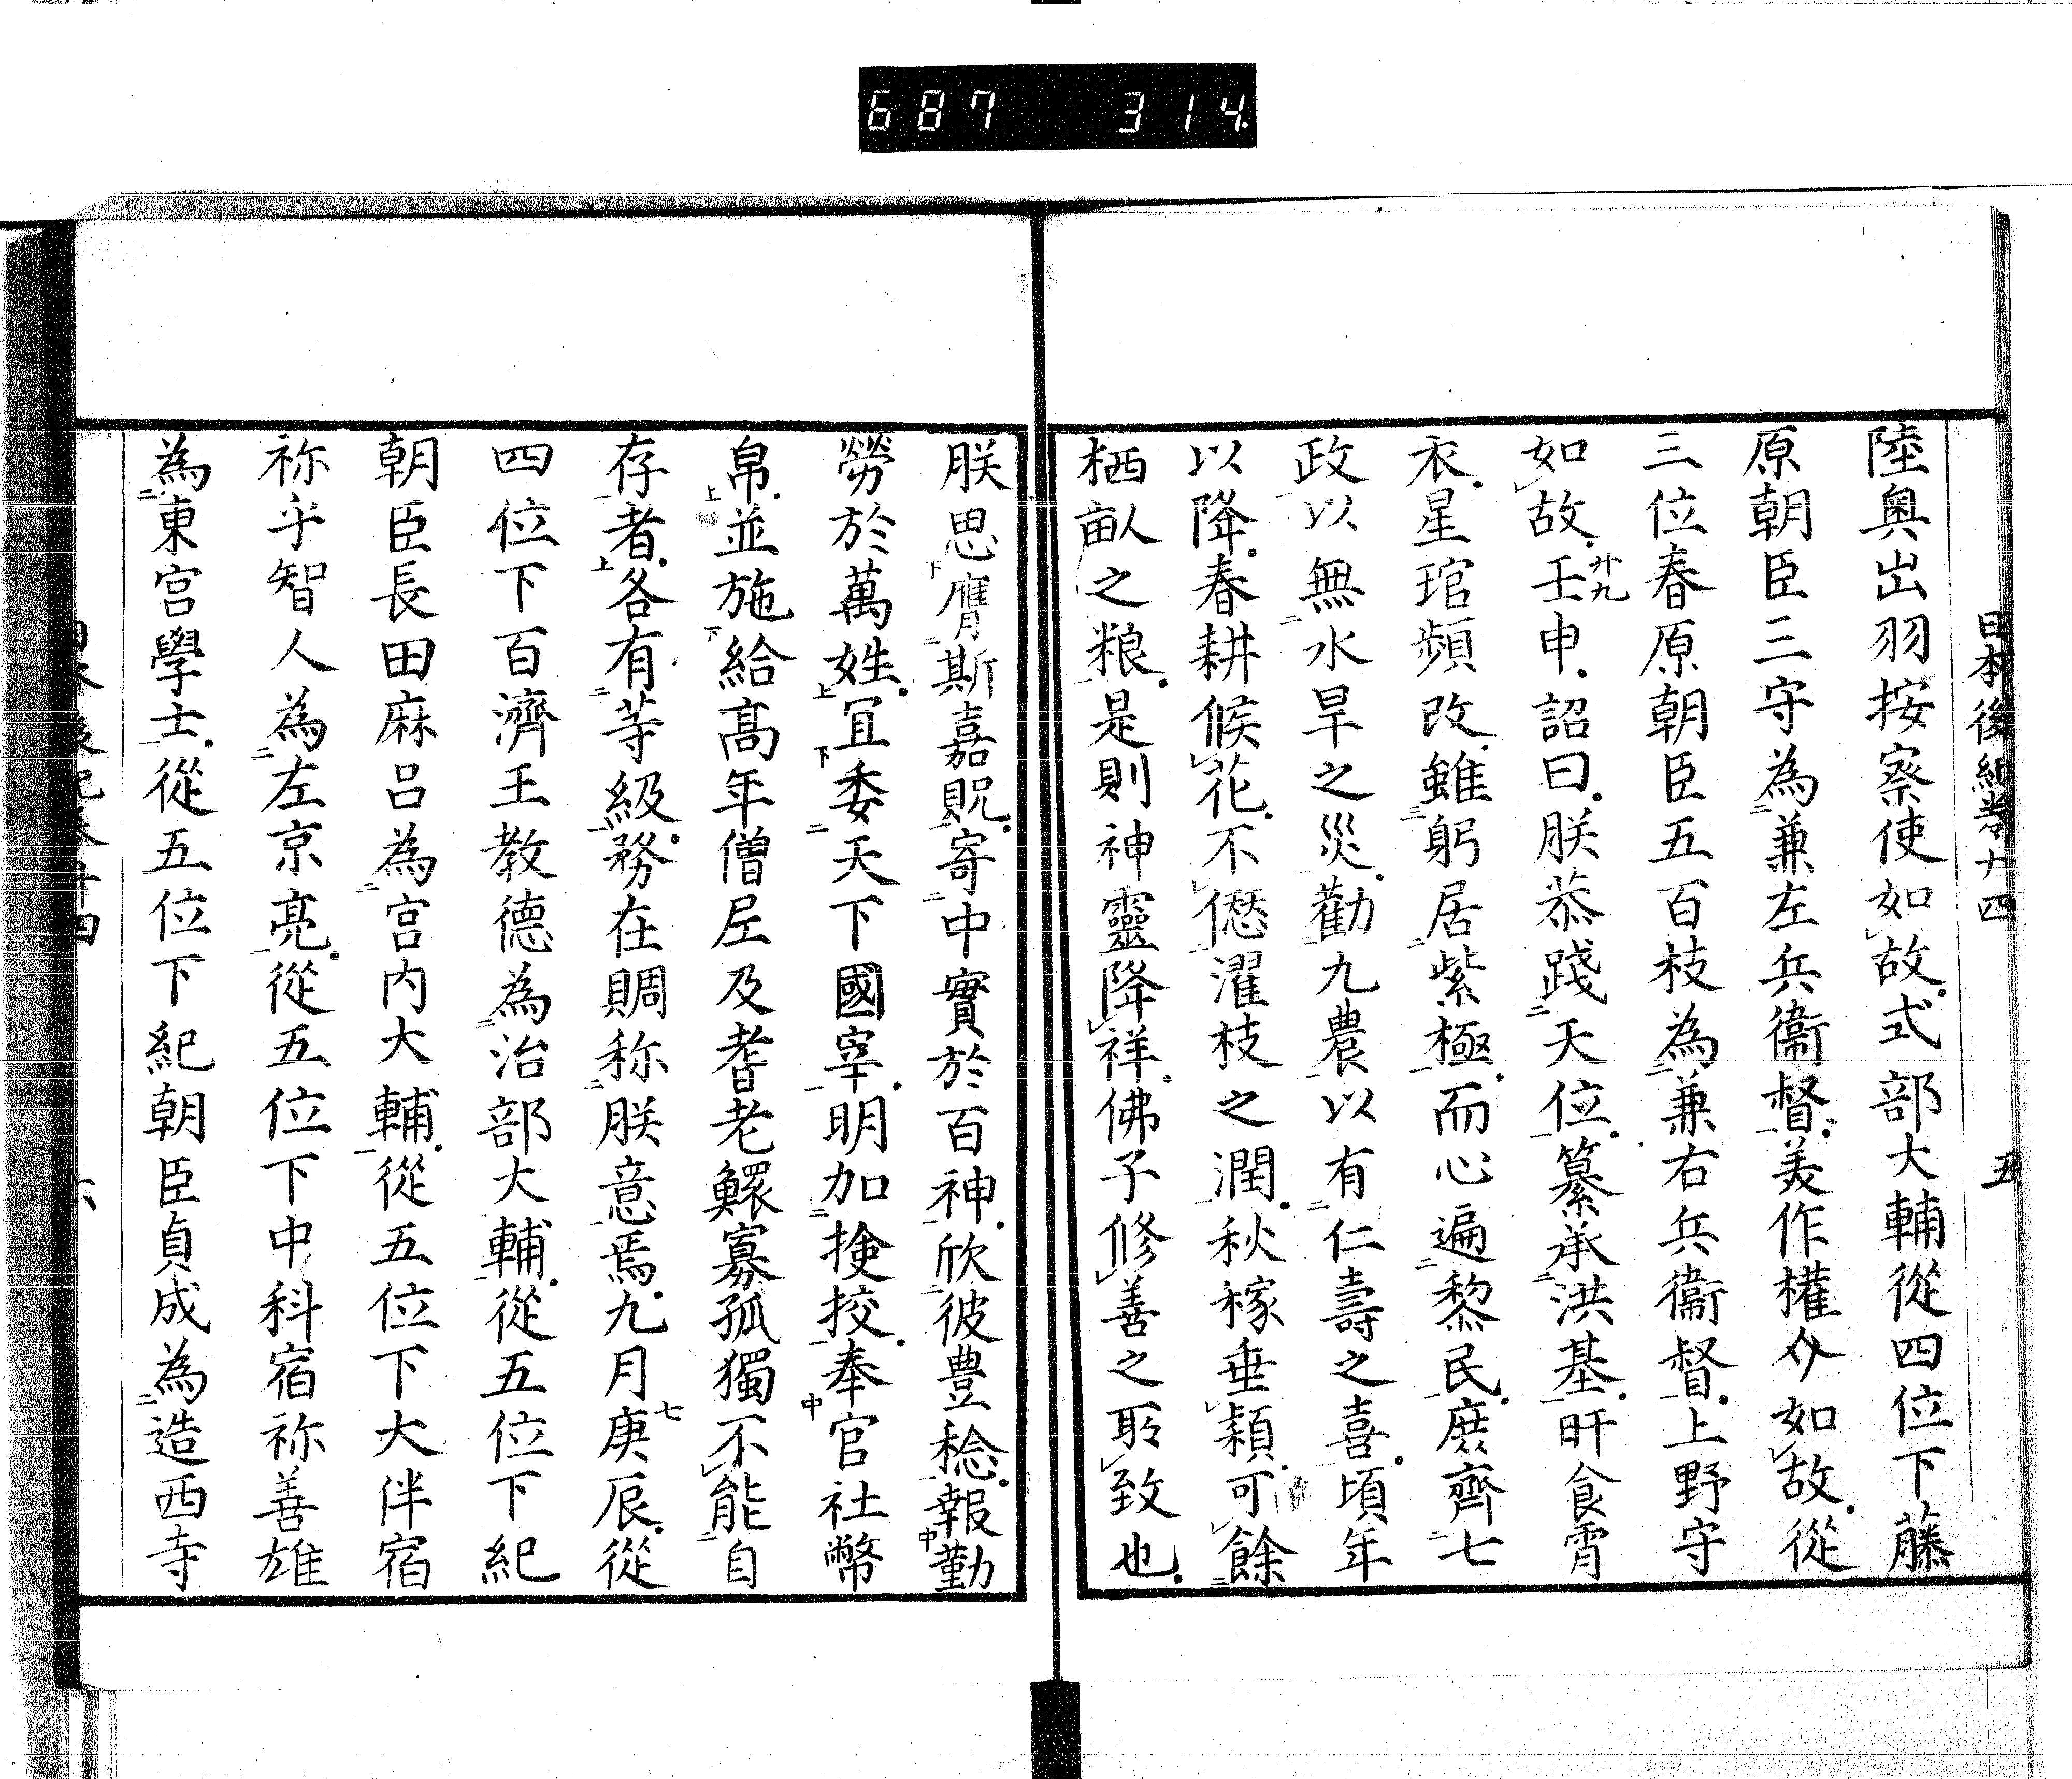 687 314
日本後紀卷廾四 五
陸奥出羽按察使如故式部大輔從四位下藤
原朝臣三守為兼左兵衞督美作權介如故從
三位春原朝臣五百枝為兼右兵衞督上野守
如故壬申詔曰朕恭踐天位纂承洪基旰食霄
廾九
衣星琯頻改雖躬居紫極而心遍黎民庶齊七
政以無水旱之災勸九農以有仁壽之喜頃年
以降春耕候花不僁濯枝之潤秋稼垂穎可餘
栖畝之粮是則神靈降祥佛子修善之所致也
朕思膺斯嘉貺寄中實於百神欣彼豊稔報勤
勞於萬姓冝委天下國宰明加撿挍奉官社幣
帛並施給髙年僧尼及耆老鰥寡孤獨不能自
存者各有等級務在賙称朕意焉九月庚辰從
七
四位下百濟王教德為治部大輔從五位下紀
朝臣長田麻呂為宮内大輔從五位下大伴宿
祢乎智人為左京亮從五位下中科宿祢善雄
為東宮學士從五位下紀朝臣貞成為造西寺
日本後紀卷廾四 六